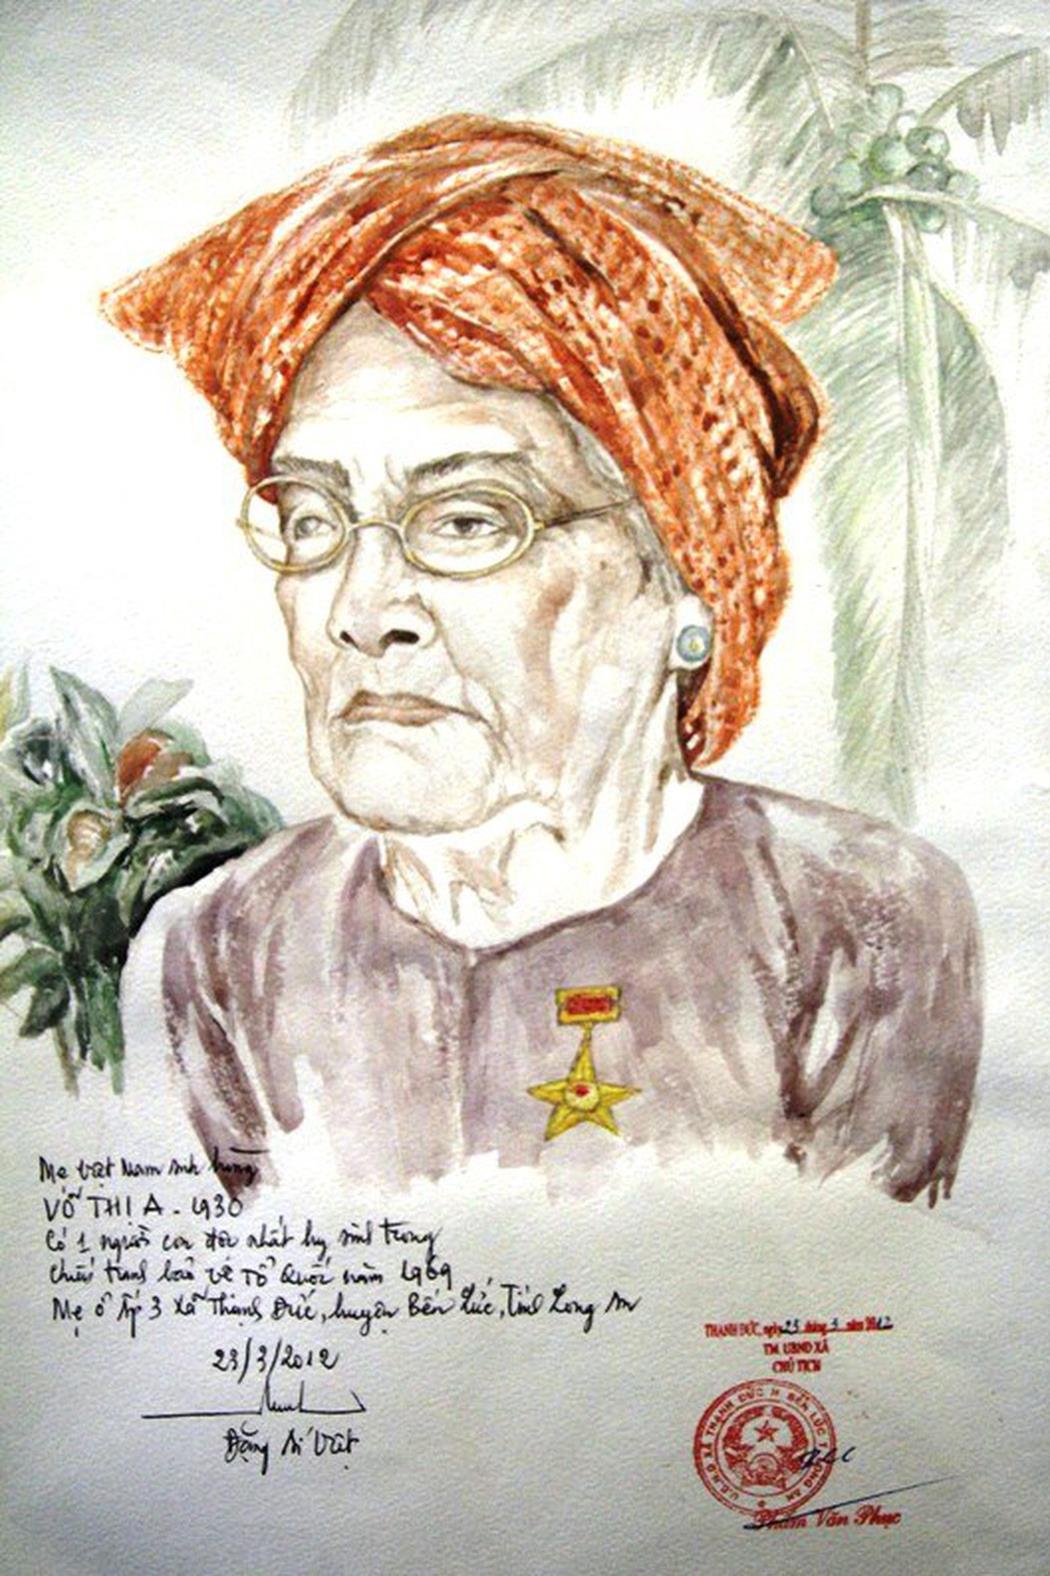 Mẹ Việt Nam anh hùng
VÕ THỊ A - 1930
Có 1 người con độc nhất hy sinh trong
chiến tranh bảo vệ Tổ Quốc năm 1969
Mẹ ở ấp 3 xã Thạnh Đức, huyện Bến Lức, Tỉnh Long An
23/3/2012
Đặng Ái Việt
THẠNH ĐỨC, ngày 23 tháng 3 năm 2012
TM. UBND XÃ
CHỦ TỊCH
U.B.N.D XÃ THẠNH ĐỨC H BẾN LỨC T LONG AN
Phạm Văn Phục